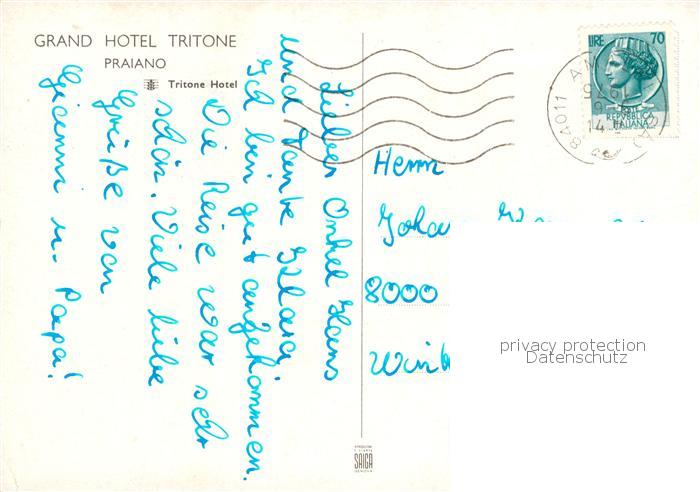 GRAND HOTEL TRITONE
PRAIANO
Tritone Hotel
Lieber Onkel Hans
und Tante Klara!
Ich bin gut angekommen.
Die Reise war sehr
schön. Viele liebe
Grüße von
Gianni u. Papa!
LIRE 70
POSTE
REPVBBLICA
ITALIANA
84011 AM
Herrn
8000
privacy protection
Datenschutz
SAIGA
GENOVA